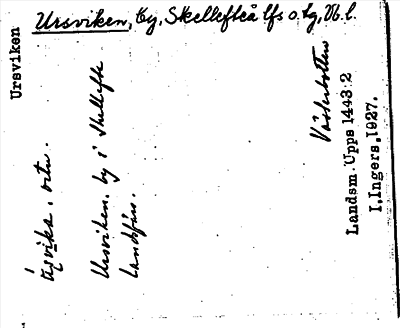 Ursviken
Ursviken, by, Skellefteå lfs o. tg, Vb. l.
Västerbotten
Ursvika, ortn.
Ursviken. by i Skellefte
landsförs.
Landsm. Upps 1443:2
I. Ingers, 1927.